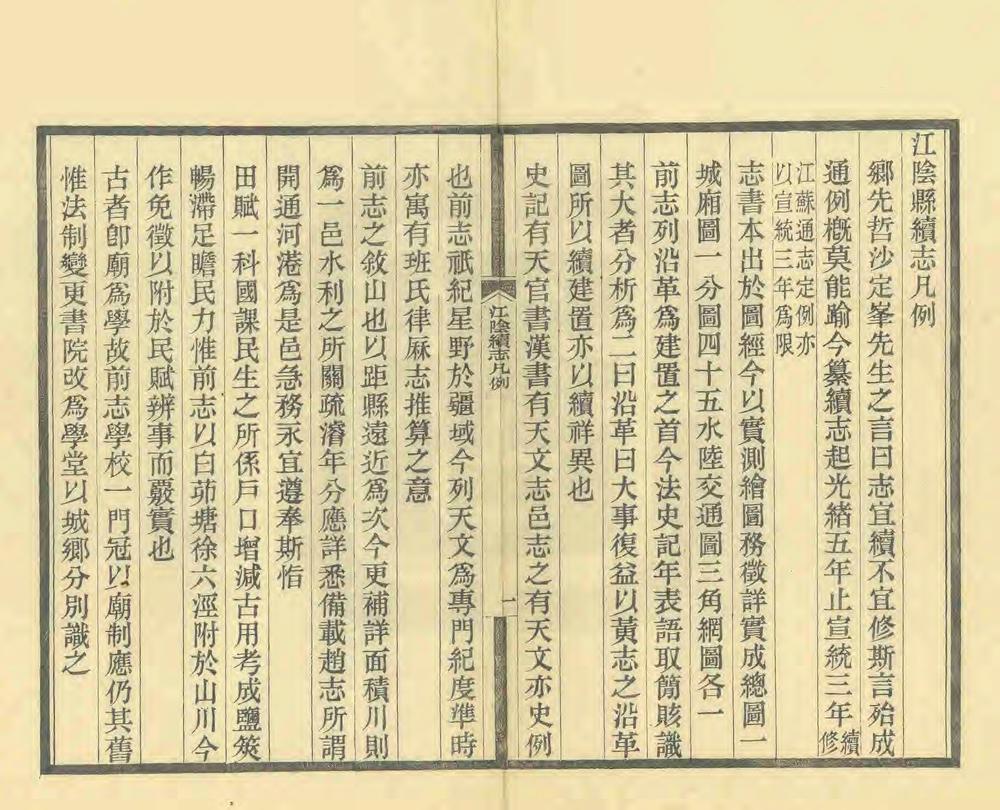 江陰縣續志凡例
鄉先哲沙定峯先生之言曰志宜續不宜修斯言殆成
通例概莫能踰今纂續志起光緒五年止宣統三年續修
江蘇通志定例亦
以宣統三年為限
志書本出於圖經今以實測繪圖務徵詳實成總圖一
城廂圖一分圖四十五水陸交通圖三角網圖各一
前志列沿革爲建置之首今法史記年表語取簡賅識
其大者分析爲二曰沿革曰大事復益以黃志之沿革
圖所以續建置亦以續祥異也
史記有天官書漢書有天文志邑志之有天文亦史例
江陰續志凡例
一
也前志祇紀星野於疆域今列天文爲專門紀度準時
亦寓有班氏律厤志推算之意
前志之敘山也以距縣遠近爲次今更補詳面積川則
爲一邑水利之所關疏濬年分應詳悉備載趙志所謂
開通河港爲是邑急務永宜遵奉斯恉
田賦一科國課民生之所係戶口增減古用考成鹽筴
暢滯足瞻民力惟前志以白茆塘徐六涇附於山川今
作免徵以附於民賦辨事而覈實也
古者卽廟爲學故前志學校一門冠以廟制應仍其舊
惟法制變更書院改爲學堂以城鄉分別識之